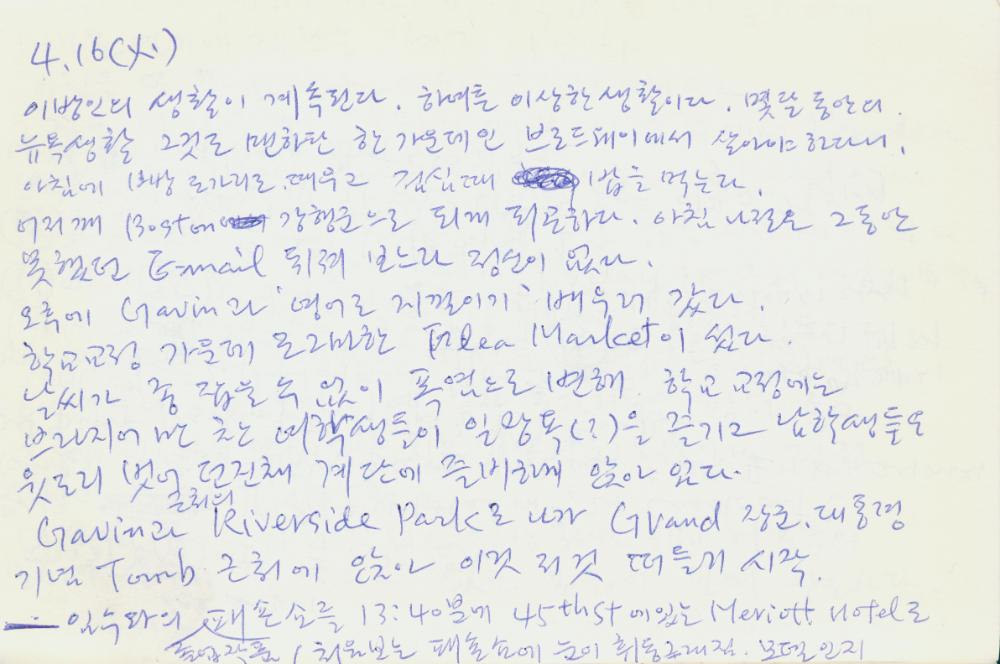 4.16(火)
이방인의 생활이 계속된다. 하여튼 이상한 생활이다. 몇달 동안의
뉴욕생활 그것도 맨하탄 한가운데인 브로드웨이에서 살아야 하다니.
아침에 빵 로 때우고 점심때 밥을 먹는다.
어저께 Boston 강행군으로 되게 피곤하다. 아침 나절은 그동안
못했던 E-mail 뒤져 보느라 정신이 없다.
오후에 Gavin과 '영어로 지껄이기' 배우러 갔다.
학교교정 가운데 조그마한 Flea Market이 섰다.
날씨가 종 잡을 수 없이 폭염으로 변해 학교 교정에는
브라지어만 찬 여학생들이 일광욕(?)을 즐기고 남학생들도
윗도리 벗어 던진채 계단에 즐비하게 앉아 있다.
Gavin과 근처의 Riverside Park로 나가 Grand 장군.대통령
기념 Tomb 근처에 앉아 이것 저것 떠들기 시작.
패숀쇼를 13:40분에 45thst에있는 Meriott Hotel로
졸업작품 / 처음보는 패숀쇼에 눈이 휘둥그래짐. 모델인지